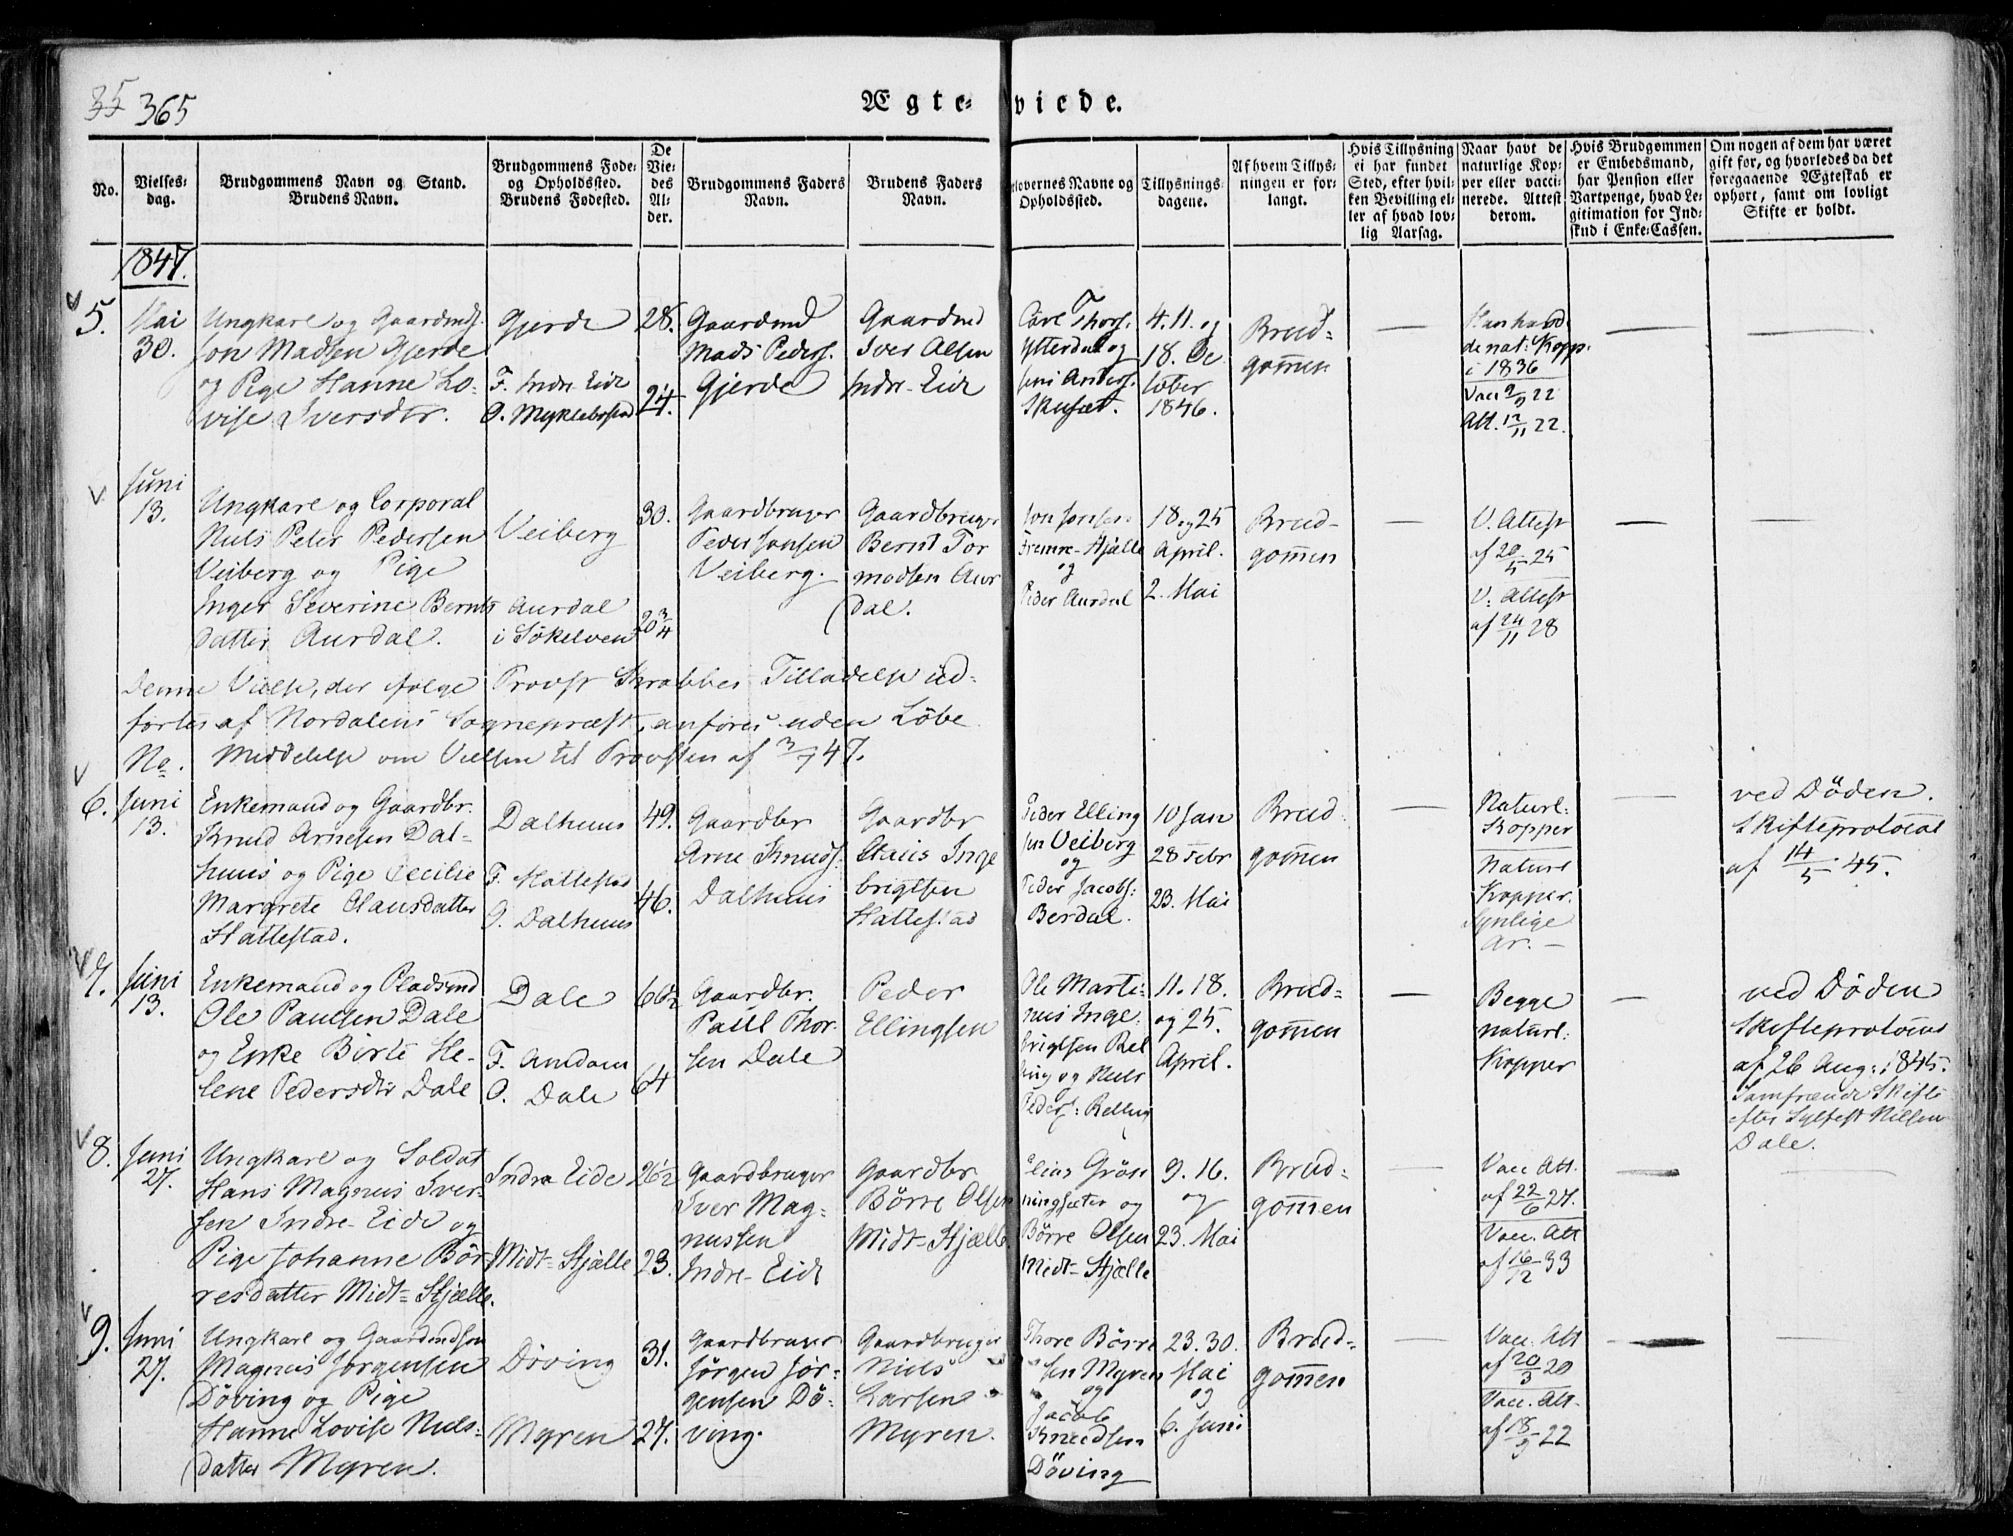 35 365
Ægte-viede.
No.
Vielses-
dag.
Brudgommens Navn og Stand.
Brudens Navn.
Brudgommens Føde-
og Opholdssted.
Brudens Fødested.
De
Vie-
des
Al-
der.
Brudgommens Faders
Navn.
Brudens Faders
Navn.
lovernes Navne og
Opholdssted.
Tillysnings-
dagene.
Af hvem Tillys-
ningen er for-
langt.
Hvis Tillysning
ei har fundet
Sted, efter hvil-
ken Bevilling el-
ler af hvad lov-
lig Aarsag.
Naar havt de
naturlige Kop-
per eller vacci-
nerede. Attest
derom.
Hvis Brudgommen
er Embedsmand,
har Pension eller
Vartpenge, hvad Le-
gitimation for Ind-
skud i Enke-Cassen.
Om nogen af dem har været
gift for, og hvorledes da det
foregaaende Ægteskab er
ophørt, samt om lovligt
Skifte er holdt.
1847.
5.
Mai
30.
Ungkarl og Gaardmds.
Jon Madsen Gjerde
og Pige Hanne Lo-
vise Iversdtr.
Gjerde
F. Indre-Eide
O. Myklebostad
28.
24.
Gaardmd
Mads Peders.
Gjerde
Gaardmd
Iver Olsen
Indre-Eide
Carl Thors.
Ytterdal og
Jens Anders.
Skuset.
4. 11. og
18. Oc
tober
1846.
Brud-
gommen
Han havd
de nat: Kopp.
i 1836
Vacc 9/9 22
Att. 12/11 22.
Juni
13.
Ungkarl og Corporal
Niels Peter Pedersen
Veiberg og Pige
Inger Severine Bernts
datter Aurdal.
Veiberg
Aurdal
i Sökelven
30.
20 3/4
Gaardbruger
Peder Jonsen
Veiberg.
Gaardbruger
Bernt Tor
modsen Aur
dal.
Jon Jonsen
Fremre-Stjälle
og
Peder Aurdal
18. og 25
April.
2. Mai
Brud-
gommen
V. Attest
af 20/5 25
V. Attest
af 24/11 28
Denne Vielse, der følge Provst Krabbes Tilladelse ud-
førtes af Nordalens Sognepræst, anføres uden Löbe
No. Meddelelse om Vielsen til Provsten af 3/7 47.
6.
Juni
13.
Enkemand og Gaardbr.
Knud Arnesen Dal-
huus og Pige Cecilie
Margrete Clausdatter
Hattestad.
Dalhuus
F. Hattestad
O. Dalhuus
49.
46.
Gaardbr
Arne Knuds.
Dalhuus
Gaardbr
Claus Inge
brigtsen
Hattestad
Peder Elling
sen Veiberg
og
Peder Jacobs:
Berdal.
10 Jan
28 Febr
23. Mai
Brud-
gommen
Naturl:
Kopper
Naturl
Kopper.
Synlige
Ar. —
ved Döden.
Skifteprotocol
af 14/5 45.
7.
Juni
13.
Enkemand og Pladsmd
Ole Paulsen Dale
og Enke Birte He-
lene Pedersdtr Dale
Dale
F. Amdam
O. Dale
66½
64
Gaardbr.
Paul Thor-
sen Dale
Peder
Ellingsen
Ole Marti-
nus Inge-
brigtsen Rel
ling og Niels
Peders: Relling
11. 18.
og 25.
April.
Brud-
gommen
Begge
naturl:
Kopper
ved Döden
Skifteprotocol
af 26 Aug: 1845.
Samfrænde Skifte
efter Sylfest Nilsen
Dale.
8.
Juni
27.
Ungkarl og Soldat
Hans Magnus Iver-
sen Indre-Eide og
Pige Johanne Bör-
resdatter Midt-Stjælle.
Indre Eide
Midt-Stjälle
26½
23.
Gaardbruger
Iver Mag-
nussen
Indre-Eide
Gaardbr
Börre Olsen
Midt-Stjælle.
Elias Grön
ningsæter og
Börre Olsen
Midt-Stjælle
9. 16.
og
23. Mai
Brud-
gommen
Vacc Att.
af 22/6 27.
Vacc. Att
af 16/12 33
9.
Juni
27.
Ungkarl og Gaardmdsøn
Magnus Jørgensen
Döving og Pige
Hanne Lovise Niels-
datter Myren.
Döving
Myren
31.
27.
Gaardbruger
Jørgen Jør-
gensen Dö-
ving.
Gaardbruger
Niels
Larsen
Myren.
Thore Börre
sen Myren
og
Jacob
Knudsen
Döving
23. 30.
Mai
og
6. Juni
Brud-
gommen
Vacc. Att
af 20/3 20
Vacc. Att.
af 18/9 22